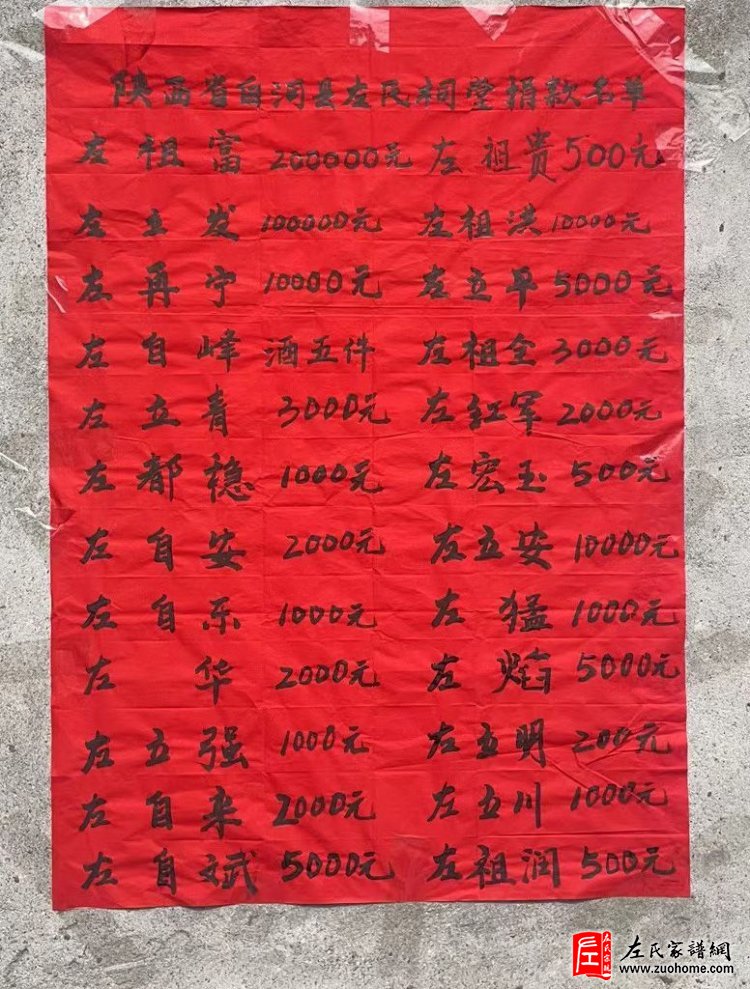 陕西省白河县左氏祠堂捐款名单
左祖富 200000元 左祖贵 500元
左立发 100000元 左祖洪 10000元
左再宁 10000元 左立平 5000元
左自峰 酒五件 左祖全 3000元
左立青 3000元 左红军 2000元
左都稳 1000元 左宏玉 500元
左自安 2000元 左立安 10000元
左自乐 1000元 左猛 1000元
左华 2000元 左焰 5000元
左立强 1000元 左立明 200元
左自来 2000元 左立川 1000元
左自斌 5000元 左祖润 500元
左氏家谱網
www.zuohome.com